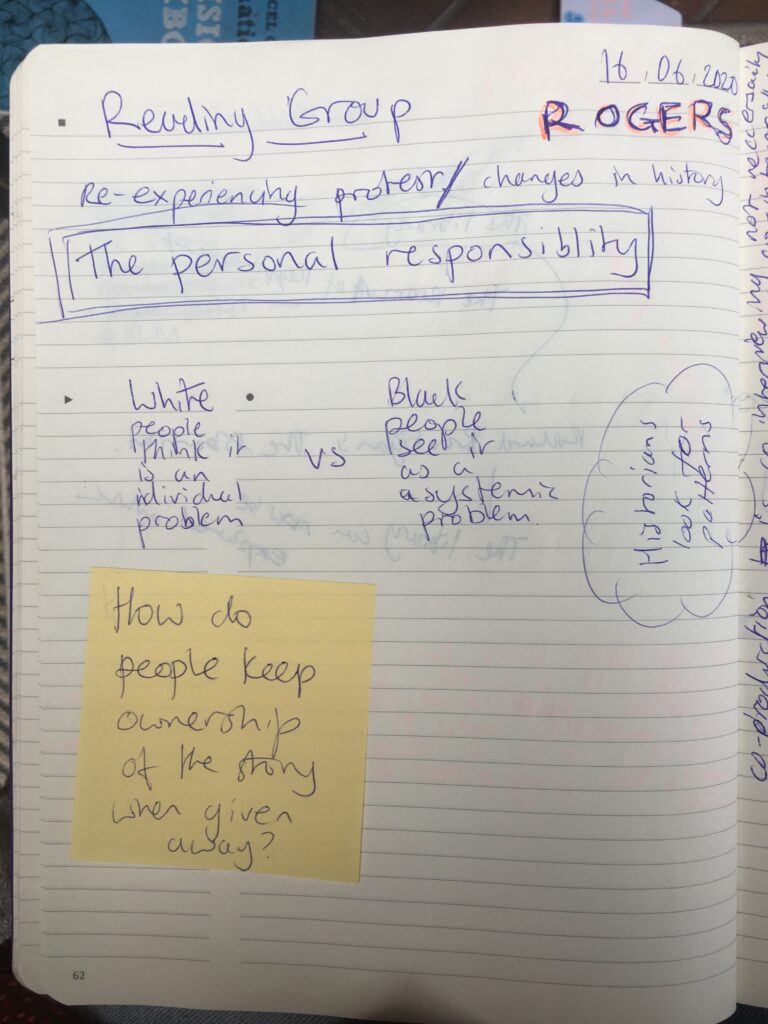 16.06.2020
Reading Group
ROGERS
Re-experiencing protest/ changes in history
The personal responsiblity
White
people
think it
is an
idividual
problem
vs
Black
people
see it
as a
asystemic
problem.
Historians
look for
patterns
How do
people keep
ownership
of the story
when given
away?
62
co-production is co interviewing not neccersaily